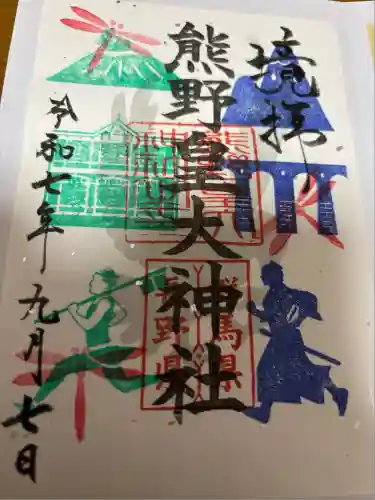 境拝
熊野皇大神社
令和七年九月七日
群馬県
長野県